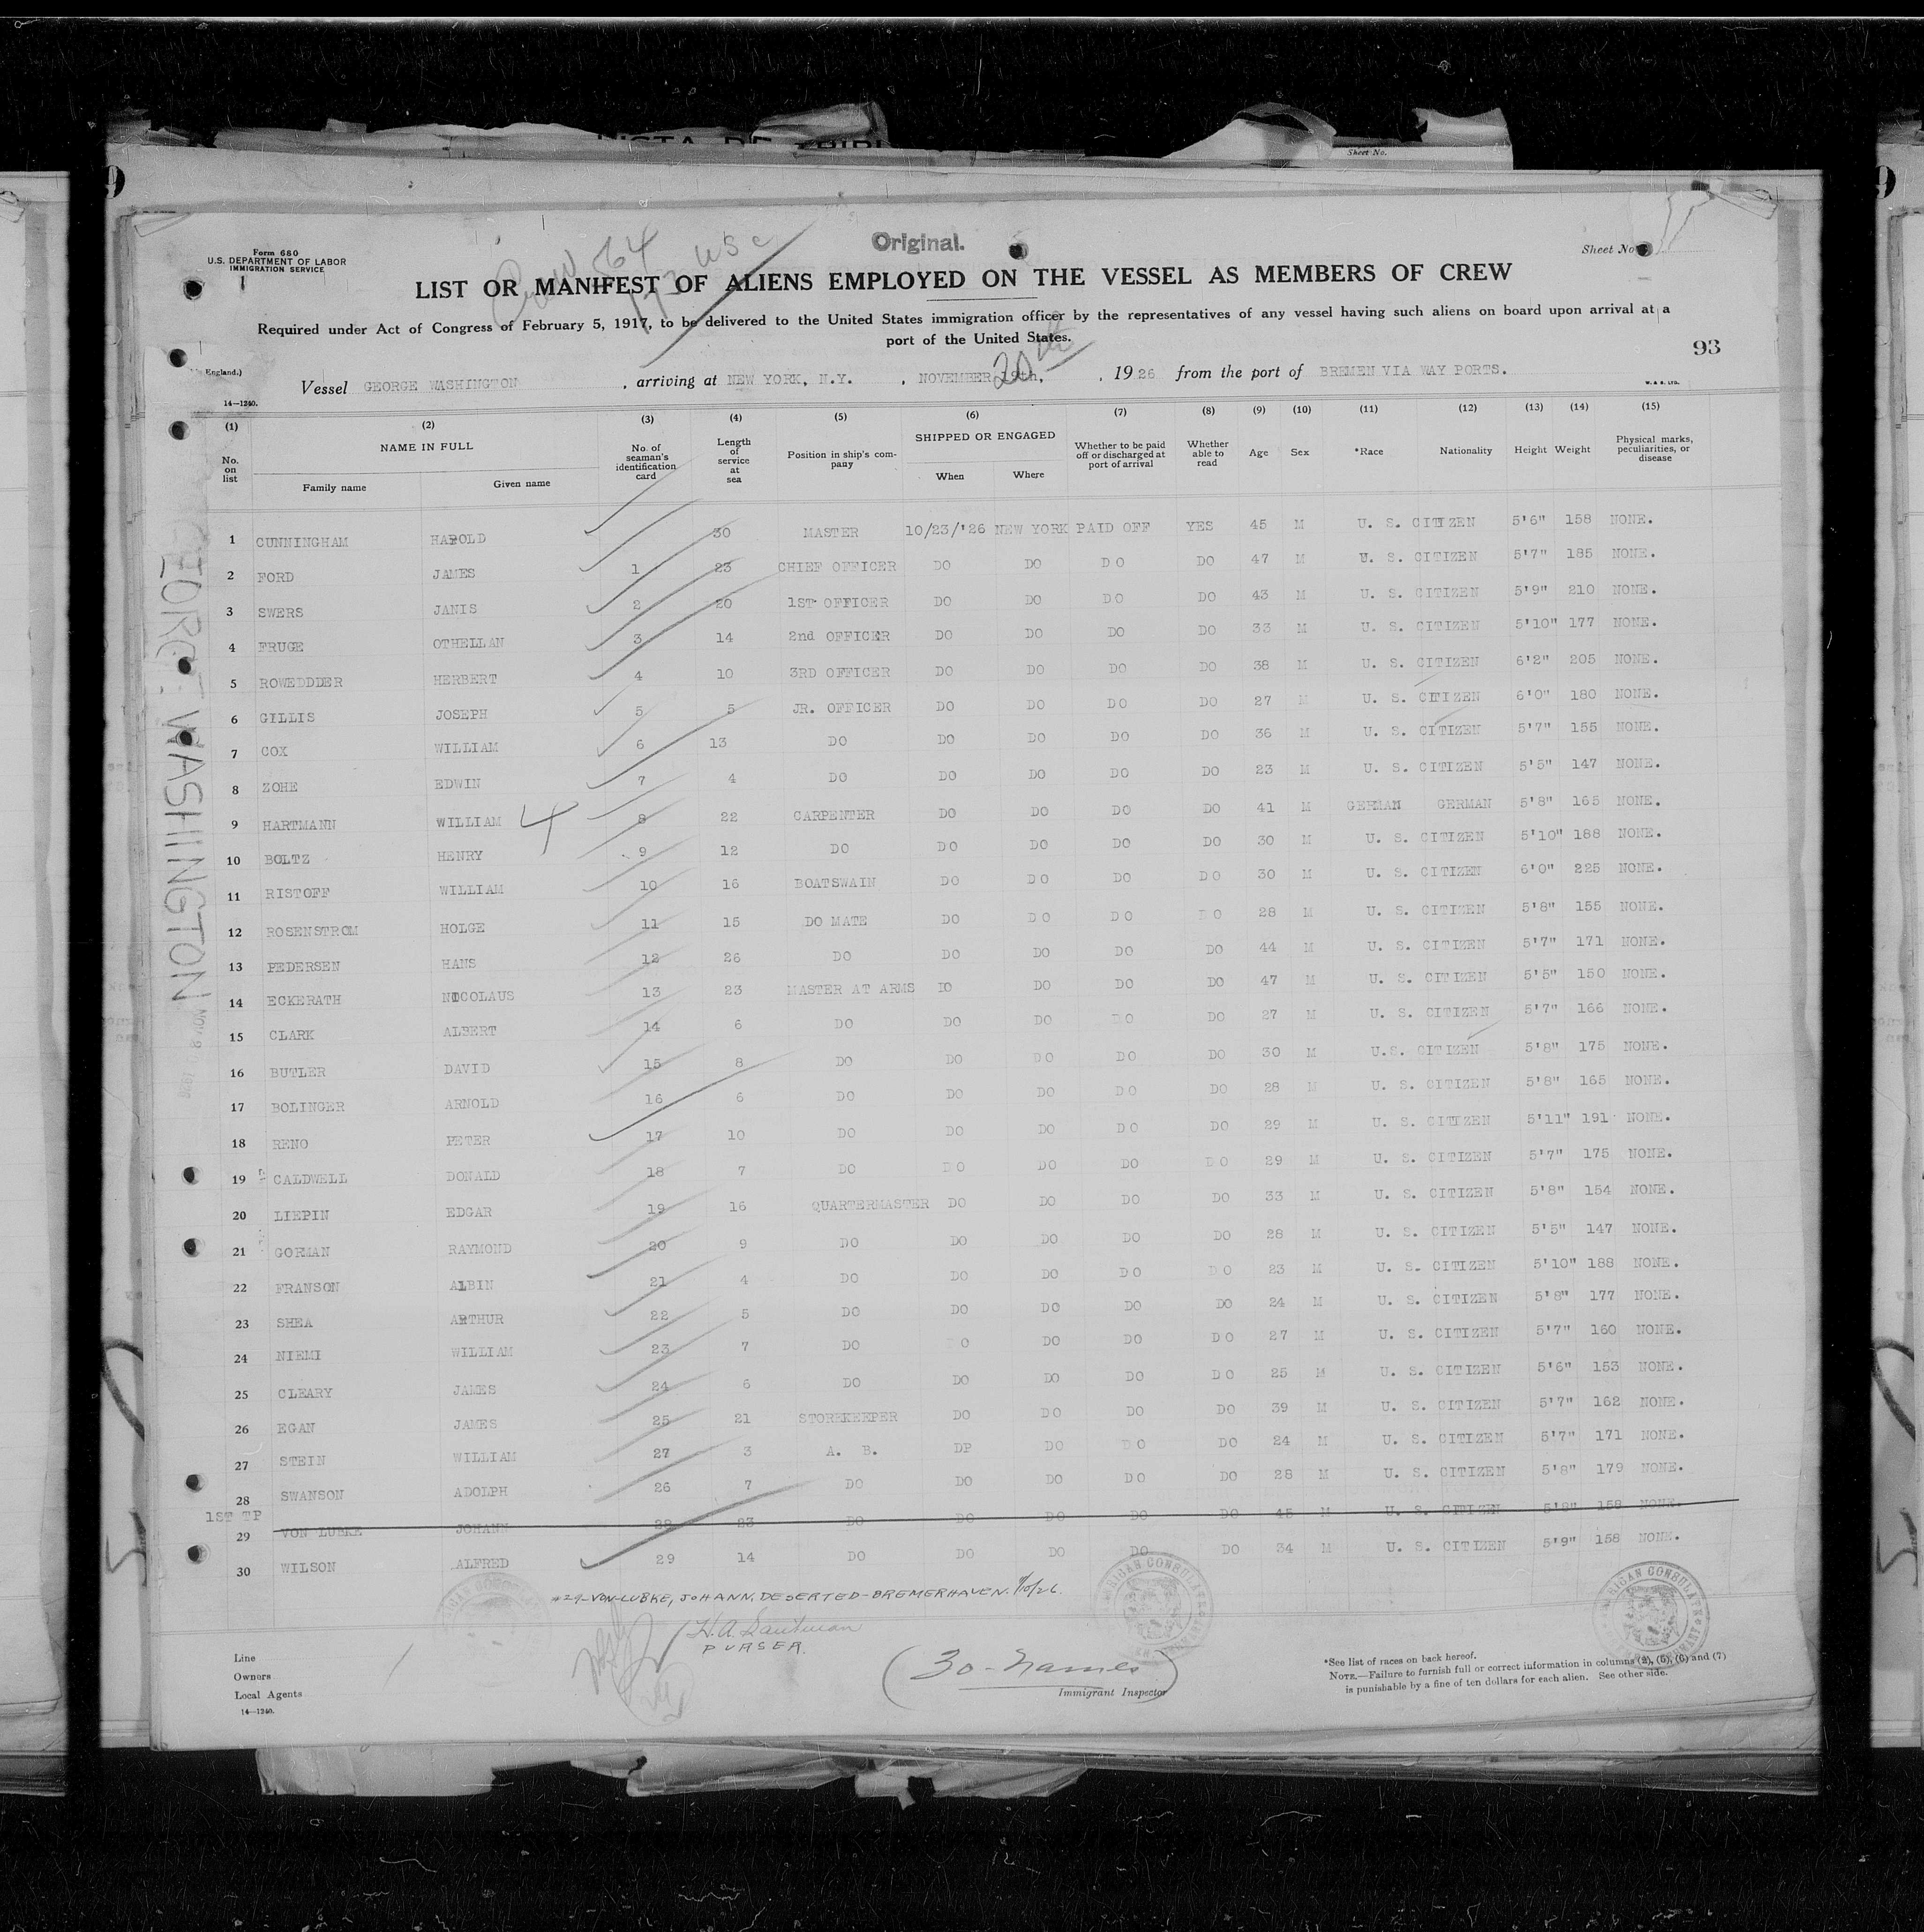 Sheet No.
Form 680
U.S. DEPARTMENT OF LABOR
IMMIGRATION SERVICE
Original.
Sheet No
Crew 564
LIST OR MANIFEST OF ALIENS EMPLOYED ON THE VESSEL AS MEMBERS OF CREW
Required under Act of Congress of February 5, 1917, to be delivered to the United States immigration officer by the representatives of any vessel having such aliens on board upon arrival at a
port of the United States.
93
England.)
Vessel GEORGE WASHINGTON, arriving at NEW YORK, N.Y., NOVEMBER 19th, 20th, 1926 from the port of BREMEN VIA WAY PORTS.
14—1240.
W. & S. LTD.
(1) (2) (3) (4) (5) (6) (7) (8) (9) (10) (11) (12) (13) (14) (15)
No. on list NAME IN FULL Family name Given name No. of seaman's identification card Length of service at sea Position in ship's company SHIPPED OR ENGAGED When Where Whether to be paid off or discharged at port of arrival Whether able to read Age Sex *Race Nationality Height Weight Physical marks, peculiarities, or disease
1 CUNNINGHAM HAROLD 30 MASTER 10/23/'26 NEW YORK PAID OFF YES 45 M U. S. CITIZEN 5'6" 158 NONE.
2 FORD JAMES 1 23 CHIEF OFFICER DO DO DO DO 47 M U. S. CITIZEN 5'7" 185 NONE.
3 SWERS JANIS 2 20 1ST OFFICER DO DO DO DO 43 M U. S. CITIZEN 5'9" 210 NONE.
4 FRUGE OTHELLAN 3 14 2nd OFFICER DO DO DO DO 33 M U. S. CITIZEN 5'10" 177 NONE.
5 ROWEDDDER HERBERT 4 10 3RD OFFICER DO DO DO DO 38 M U. S. CITIZEN 6'2" 205 NONE.
6 GILLIS JOSEPH 5 5 JR. OFFICER DO DO DO DO 27 M U. S. CITIZEN 6'0" 180 NONE.
7 COX WILLIAM 6 13 DO DO DO DO DO 36 M U. S. CITIZEN 5'7" 155 NONE.
8 ZOHE EDWIN 7 4 DO DO DO DO DO 23 M U. S. CITIZEN 5'5" 147 NONE.
9 HARTMANN WILLIAM 4 8 22 CARPENTER DO DO DO DO 41 M GERMAN GERMAN 5'8" 165 NONE.
10 BOLTZ HENRY 9 12 DO DO DO DO DO 30 M U. S. CITIZEN 5'10" 188 NONE.
11 RISTOFF WILLIAM 10 16 BOATSWAIN DO DO DO DO 30 M U. S. CITIZEN 6'0" 225 NONE.
12 ROSENSTROM HOLGE 11 15 DO MATE DO DO DO DO 28 M U. S. CITIZEN 5'8" 155 NONE.
13 PEDERSEN HANS 12 26 DO DO DO DO DO 44 M U. S. CITIZEN 5'7" 171 NONE.
14 ECKERATH NICOLAUS 13 23 MASTER AT ARMS DO DO DO DO 47 M U. S. CITIZEN 5'5" 150 NONE.
15 CLARK ALBERT 14 6 DO DO DO DO DO 27 M U. S. CITIZEN 5'7" 166 NONE.
16 BUTLER DAVID 15 8 DO DO DO DO DO 30 M U.S. CITIZEN 5'8" 175 NONE.
17 BOLINGER ARNOLD 16 6 DO DO DO DO DO 28 M U. S. CITIZEN 5'8" 165 NONE.
18 RENO PETER 17 10 DO DO DO DO DO 29 M U. S. CITIZEN 5'11" 191 NONE.
19 CALDWELL DONALD 18 7 DO DO DO DO DO 29 M U. S. CITIZEN 5'7" 175 NONE.
20 LIEPIN EDGAR 19 16 QUARTERMASTER DO DO DO DO 33 M U. S. CITIZEN 5'8" 154 NONE.
21 GORMAN RAYMOND 20 9 DO DO DO DO DO 28 M U. S. CITIZEN 5'5" 147 NONE.
22 FRANSON ALBIN 21 4 DO DO DO DO DO 23 M U. S. CITIZEN 5'10" 188 NONE.
23 SHEA ARTHUR 22 5 DO DO DO DO DO 24 M U. S. CITIZEN 5'8" 177 NONE.
24 NIEMI WILLIAM 23 7 DO O DO DO DO 27 M U. S. CITIZEN 5'7" 160 NONE.
25 CLEARY JAMES 24 6 DO DO DO DO DO 25 M U. S. CITIZEN 5'6" 153 NONE.
26 EGAN JAMES 25 21 STOREKEEPER DO DO DO DO 39 M U. S. CITIZEN 5'7" 162 NONE.
27 STEIN WILLIAM 27 3 A. B. DP DO DO DO 24 M U. S. CITIZEN 5'7" 171 NONE.
28 SWANSON ADOLPH 26 7 DO DO DO DO DO 28 M U. S. CITIZEN 5'8" 179 NONE.
1ST TP
29 VON LUBKE JOHANN 28 23 DO DO DO DO DO 45 M U. S. CITIZEN 5'8" 158 NONE.
30 WILSON ALFRED 29 14 DO DO DO DO DO 34 M U. S. CITIZEN 5'9" 158 NONE.
#29-VON-LUBKE, JOHANN, DESERTED-BREMERHAVEN. 11/10/26.
PURSER.
(30-names)
Immigrant Inspector
Line
Owners
Local Agents
14—1240.
*See list of races on back hereof.
NOTE.—Failure to furnish full or correct information in columns (2), (5), (6) and (7)
is punishable by a fine of ten dollars for each alien. See other side.
GEORGE WASHINGTON
AMERICAN CONSULATE